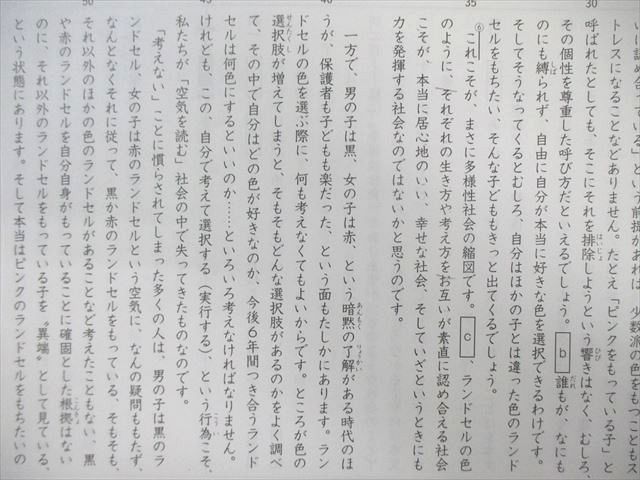 30
ー認め合ってる」という前提があれば、少数派の色をもつこともス
トレスになることなどありません。たとえ「ピンクをもっている子」と
呼ばれたとしても、そこにそれを排除しようという響きはなく、むしろ、
その個性を尊重した呼び方だといえるでしょう。 b 誰もが、なにも
のにも縛られず、自由に自分が本当に好きな色を選択できるわけです。
そしてそうなってくるとむしろ、自分はほかの子とは違った色のランド
セルをもちたい、そんな子どももきっと出てくるでしょう。
35
⑥これこそが、まさに多様性社会の縮図です。 c 、ランドセルの色
のように、それぞれの生き方や考え方をお互いが素直に認め合える社会
こそが、本当に居心地のいい、幸せな社会、そしていざというときにも
力を発揮する社会なのではないかと思うのです。
一方で、男の子は黒、女の子は赤、という暗黙の了解がある時代のほ
40
うが、保護者も子どもも楽だった、という面もたしかにあります。ラン
ドセルの色を選ぶ際に、何も考えなくてもよいからです。ところが色の
選択肢が増えてしまうと、そもそもどんな選択肢があるのかをよく調べ
て、その中で自分はどの色が好きなのか、今後6年間つき合うランド
セルは何色にするといいのか……といろいろ考えなければなりません。
45
けれども、この、自分で考えて選択する（実行する）、という行為こそ、
私たちが「空気を読む」社会の中で失ってきたものなのです。
「考えない」ことに慣らされてしまった多くの人は、男の子は黒のラ
ンドセル、女の子は赤のランドセルという空気に、なんの疑問ももたず、
なんとなくそれに従って、黒か赤のランドセルをもっている、そもそも、
50
それ以外のほかの色のランドセルがあることなど考えたこともない、黒
や赤のランドセルを自分自身がもっていることに確固とした根拠はない
のに、それ以外のランドセルをもっている子を〝異端〟として見ている、
という状態にあります。そして本当はピンクのランドセルをもちたいの